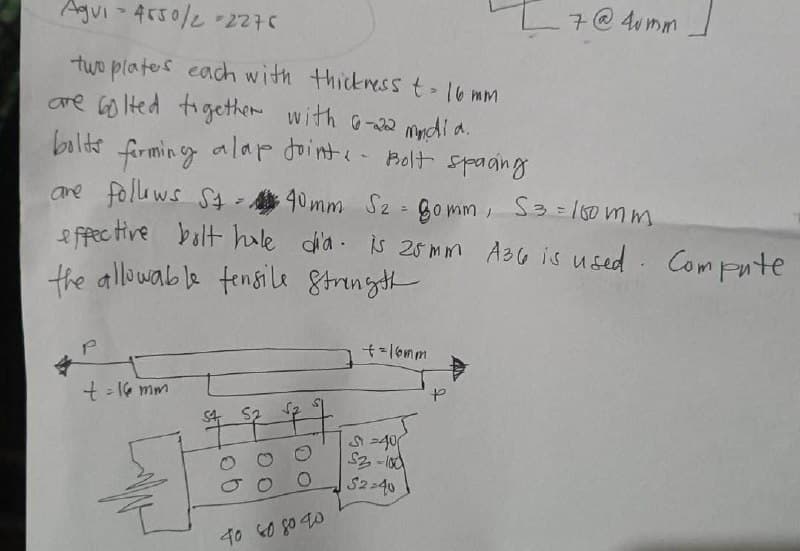 Agv1 = 4550/2 = 2275
7 @ 40mm
two plates each with thickness t = 16 mm
are bolted together with 6-22 mmdia.
bolts forming a lap joint. Bolt spacing
are follows S1 = 40mm S2 = 80mm, S3 = 100mm
effective bolt hole dia. is 25mm A36 is used. Compute
the allowable tensile strength
P
t = 16mm
t = 16 mm
P
S1 S2 S2 S1
S1 = 40
S3 = 100
S2 = 40
40 80 80 40